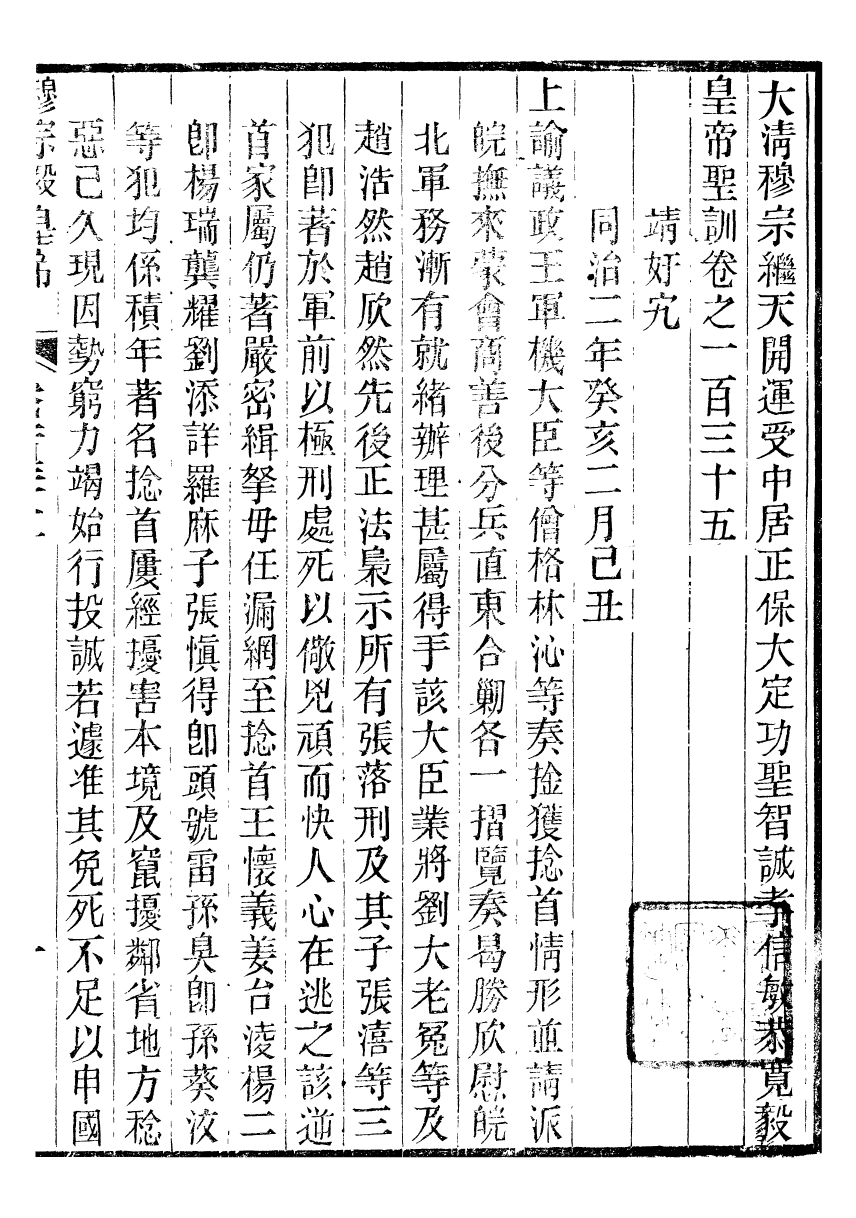 大清穆宗繼天開運受中居正保大定功聖智誠孝信敏恭寬毅
皇帝聖訓卷之一百三十五
靖奸宄
同治二年癸亥二月己丑
上諭議政王軍機大臣等僧格林沁等奏捦獲捻首情形並請派
皖撫來蒙會商善後分兵直東合勦各一摺覽奏曷勝欣慰皖
北軍務漸有就緒辦理甚屬得手該大臣業將劉大老冤等及
趙浩然趙欣然先後正法梟示所有張落刑及其子張溍等三
犯卽著於軍前以極刑處死以儆兇頑而快人心在逃之該逆
首家屬仍著嚴密緝拏毋任漏網至捻首王懷義姜台淩楊二
卽楊瑞龔耀劉添詳羅麻子張愼得卽頭號雷孫臭卽孫葵汶
等犯均係積年著名捻首屢經擾害本境及竄擾鄰省地方稔
惡已久現因勢窮力竭始行投誠若遽准其免死不足以申國
穆宗毅皇帝
一